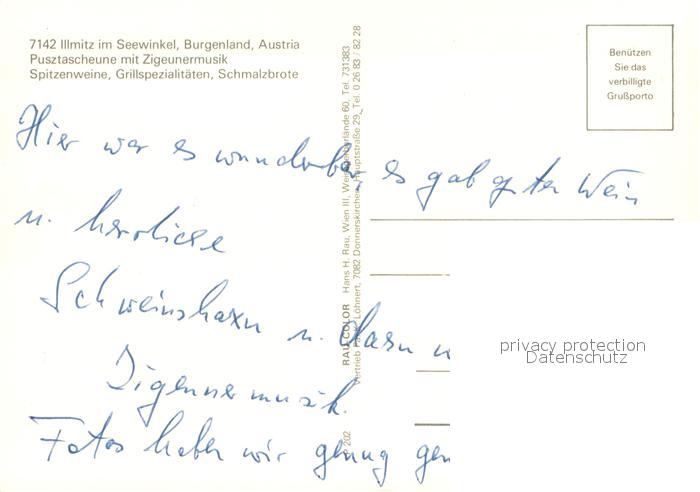 7142 Illmitz im Seewinkel, Burgenland, Austria
Pusztascheune mit Zigeunermusik
Spitzenweine, Grillspezialitäten, Schmalzbrote
Benützen
Sie das
verbilligte
Grußporto
Hier war es wunderbar, es gab guten Wein
u. herrliche
Schweinshaxn u.
Zigeunermusik.
Fotos haben wir genug
RAU COLOR Hans H. Rau, Wien III, Tel. 731383
Vertrieb Löhnert, 7082 Donnerskirchen, Hauptstraße 29, Tel. 0 26 83 / 82 28
202
privacy protection
Datenschutz